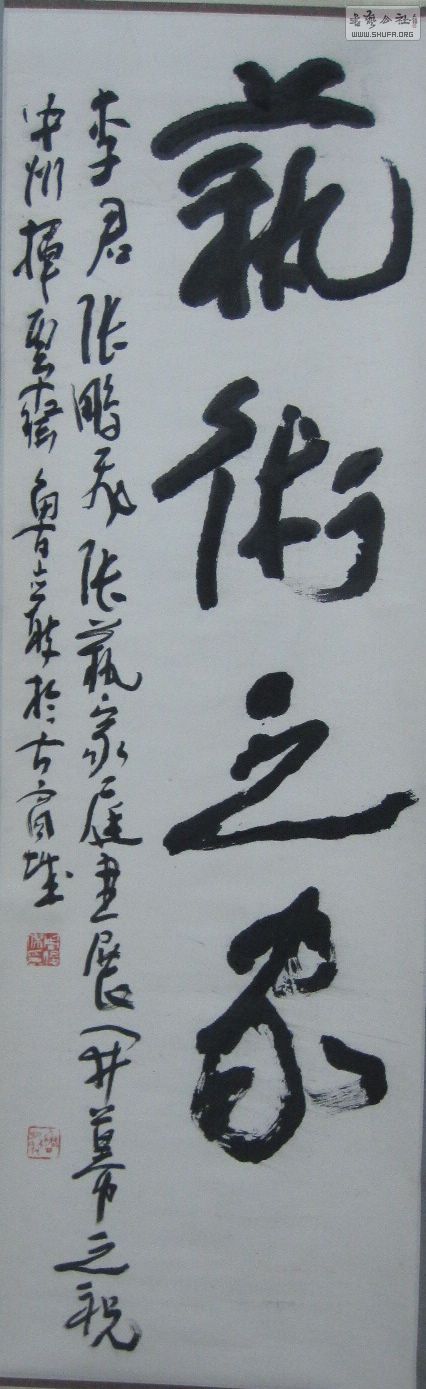 書藝公社
WWW.SHUFA.ORG
藝術之家
李君張鵬飛張藝家庭畫展開幕之祝
中州揮墨齋魯古於古宛城